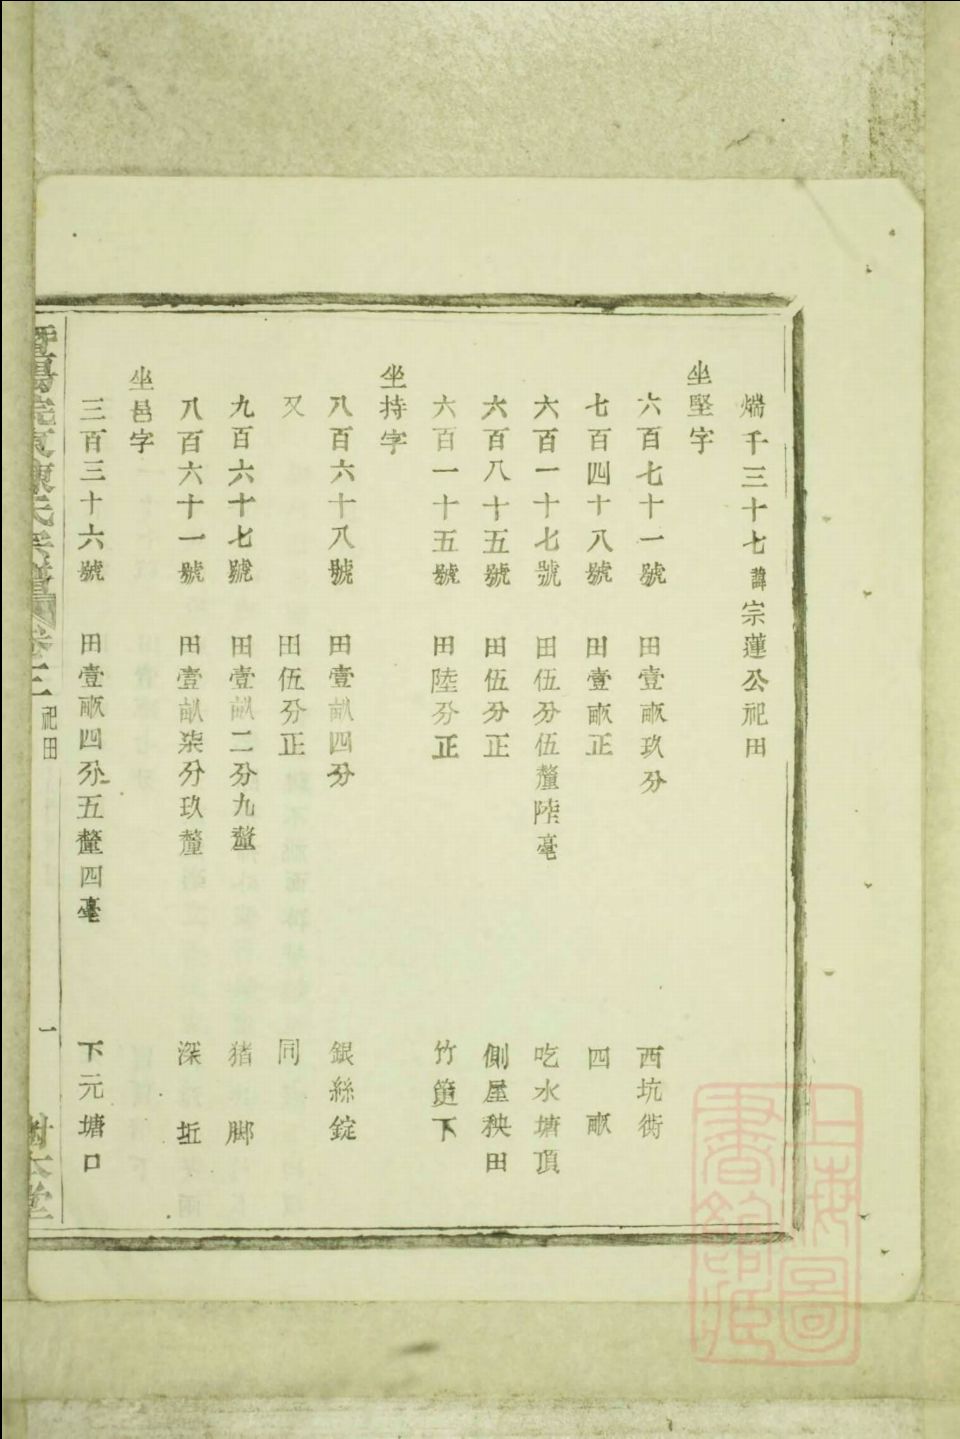 煓千三十七諱宗蓮公祀田
坐堅字
六百七十一號 田壹畝玖分 西坑衖
七百四十八號 田壹畝正 四畝
六百一十七號 田伍分伍釐陸毫 吃水塘頂
六百八十五號 田伍分正 側屋秧田
六百一十五號 田陸分正 竹園下
坐持字
八百六十八號 田壹畝四分 銀絲錠
又 田伍分正 同
九百六十七號 田壹畝二分九釐 猪 脚
八百六十一號 田壹畝柒分玖釐 深坵
坐邑字
三百三十六號 田壹畝四分五釐四毫 下元塘口
暨陽 陳氏宗譜 卷三 祀田 一
上海圖書館藏